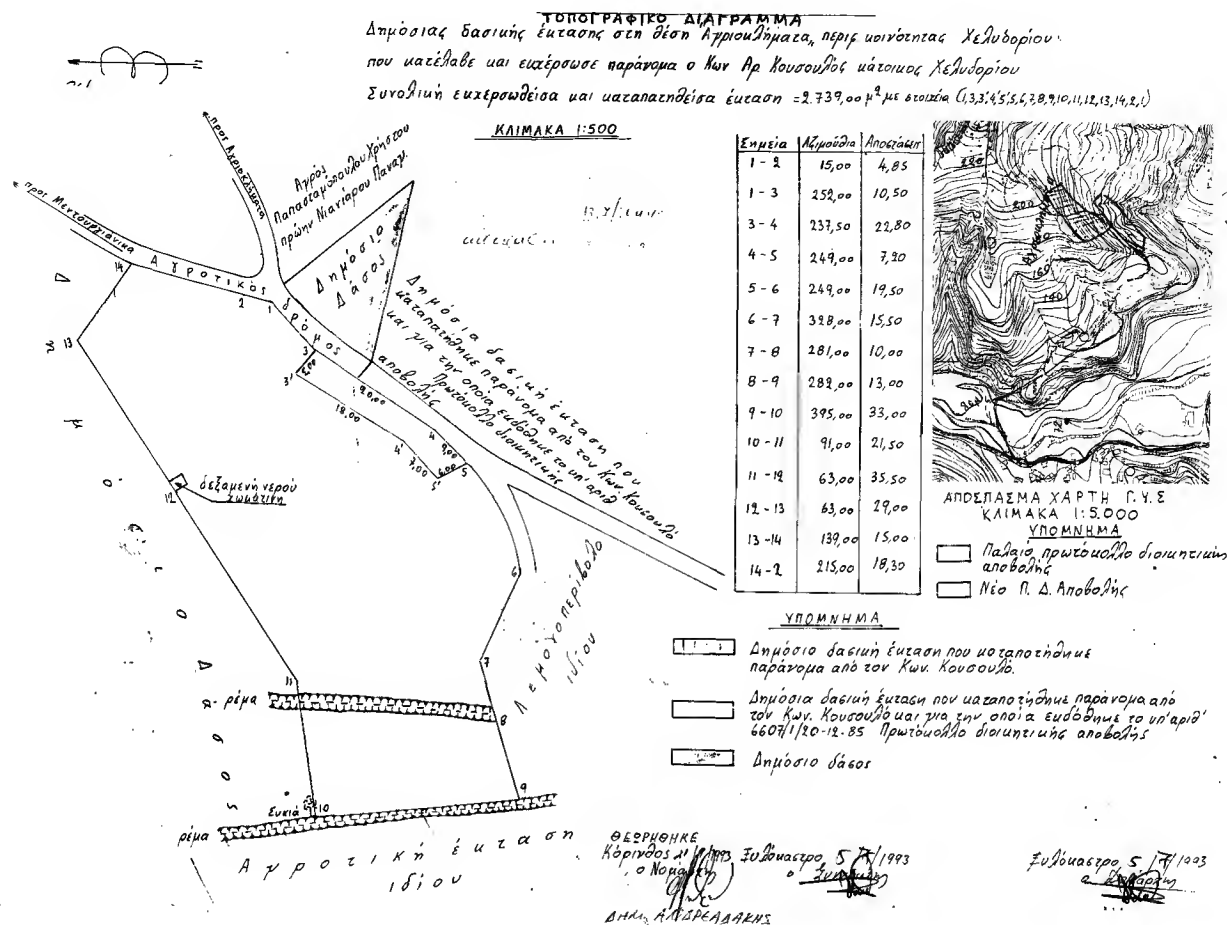 ΤΟΠΟΓΡΑΦΙΚΟ ΔΙΑΓΡΑΜΜΑ
Δημόσιας δασικής έκτασης στη θέση Αγριοκλήματα,, περιφ κοινότητας Χελυδορίου
που κατέλαβε και εκχέρσωσε παράνομα ο Κων Αρ Κουσουλός κάτοικος Χελυδορίου
Συνολική εκχερσωθείσα και καταπατηθείσα έκταση =2.739,00 μ² με στοιχεία (1,3,3',4',5',5,6,7,8,9,10,11,12,13,14,2,1)
ΚΛΙΜΑΚΑ 1:500
προς Αχριοκλήματα
προς Μεντουργιάνικα
Αγρός
Παπασταμοπούλου Χρήστου
πρώην Νιανιάρου Παναγ.
Αγροτικός δρόμος
Δημόσιο
Δάσος
Δημόσια δασική έκταση που
καταπατήθηκε παράνομα από τον Κων. Κουσουλό
και για την οποία εκδόθηκε το υπ' αριθ
Πρωτόκολλο διοικητικής
αποβολής
14
1
2
1
13
3
3'
2,00
20,00
18,00
4
4'
9,00
7,00
6,00
5
5'
12
δεξαμενή νερού
χωμάτινη
6
7
8
9
10
11
Δημόσιο Δάσος
Λεμονοπερίβολο
ιδίου
ρέμα
Συκιά
ρέμα
Αγροτική έκταση
ιδίου
Σημεία Αζιμούθια Αποστάσεις
1-2 15,00 4,85
1-3 252,00 10,50
3-4 237,50 22,80
4-5 249,00 7,20
5-6 249,00 19,50
6-7 328,00 15,50
7-8 281,00 10,00
8-9 282,00 13,00
9-10 395,00 33,00
10-11 91,00 21,50
11-12 63,00 35,50
12-13 63,00 29,00
13-14 139,00 15,00
14-2 215,00 18,30
220
200
160
140
ΑΠΟΣΠΑΣΜΑ ΧΑΡΤΗ Γ.Υ.Σ
ΚΛΙΜΑΚΑ 1:5.000
ΥΠΟΜΝΗΜΑ
Παλαιο πρωτόκολλο διοικητικής
αποβολής
Νέο Π. Δ. Αποβολής
ΥΠΟΜΝΗΜΑ
Δημόσιο δασική έκταση που καταπατήθηκε
παράνομα από τον Κων. Κουσουλό.
Δημόσια δασική έκταση που καταπατήθηκε παράνομα από
τον Κων. Κουσουλό και για την οποία εκδόθηκε το υπ' αριθ'
6607/1/20-12-85 Πρωτόκολλο διοικητικής αποβολής
Δημόσιο δάσος
ΘΕΩΡΗΘΗΚΕ
Κόρινθος 1993
ο Νομάρχης
ΔΗΜ. ΑΝΔΡΕΑΔΑΚΗΣ
Ξυλόκαστρο 5/7/1993
Ξυλόκαστρο 5/7/1993